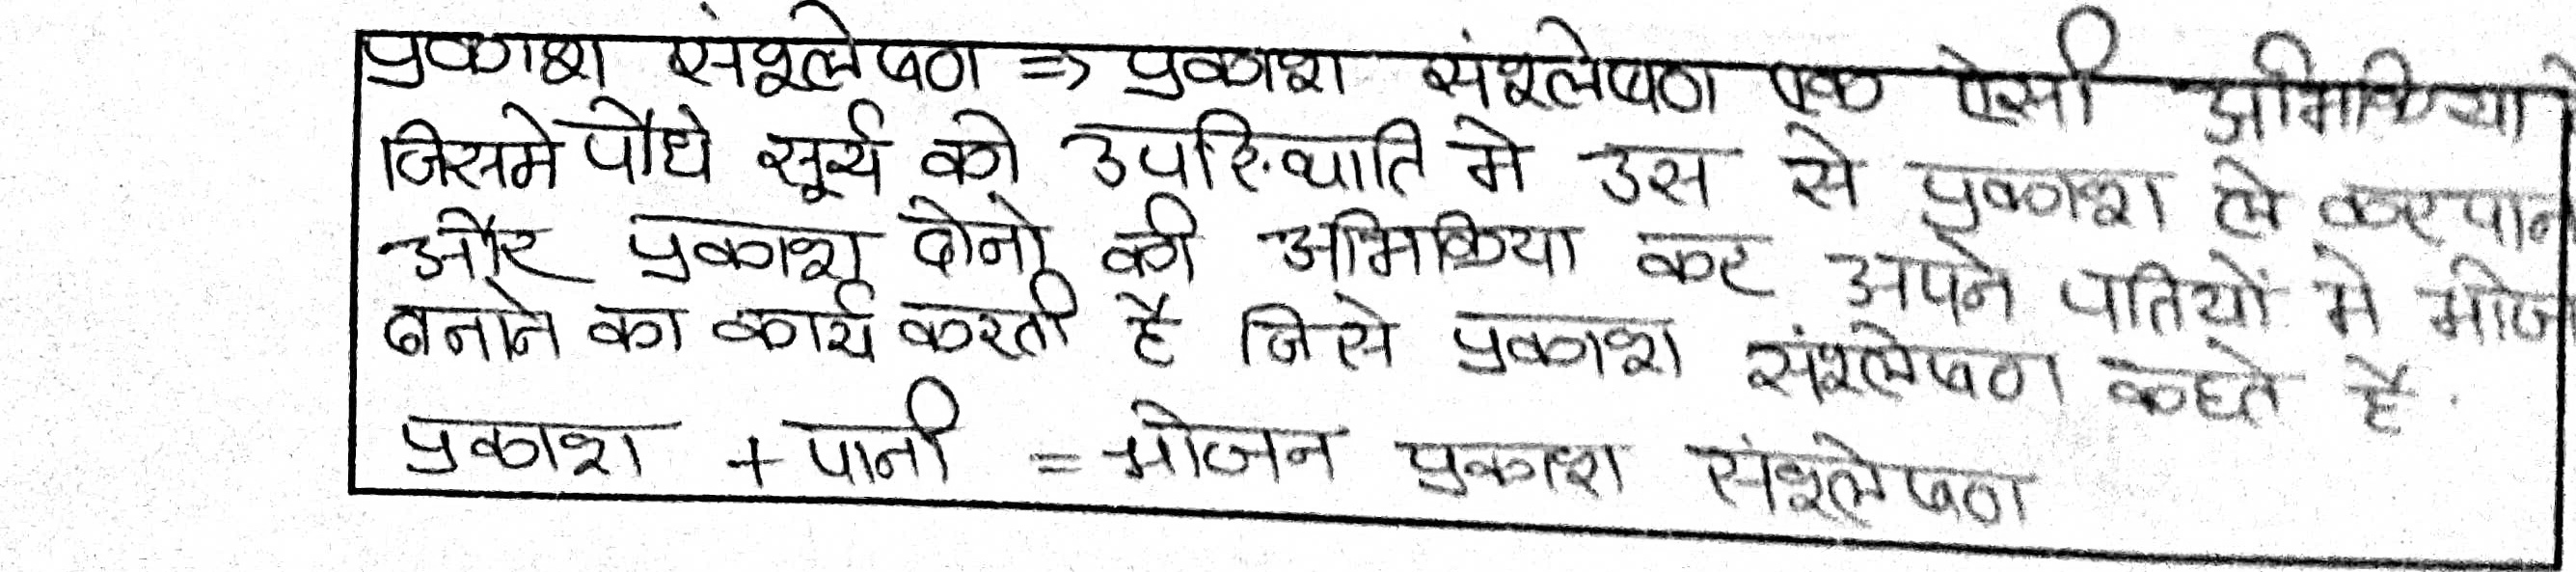 प्रकाश संश्लेषण => प्रकाश संश्लेषण एक ऐसी अभिक्रिया है
जिसमे पौधे सूर्य की उपस्थिति मे उस से प्रकाश ले कर
और प्रकाश दोनो की अभिक्रिया कर अपने पतियों मे
बनाने का कार्य करती है जिसे प्रकाश संश्लेषण कहते है.
प्रकाश + पानी = भोजन प्रकाश संश्लेषण